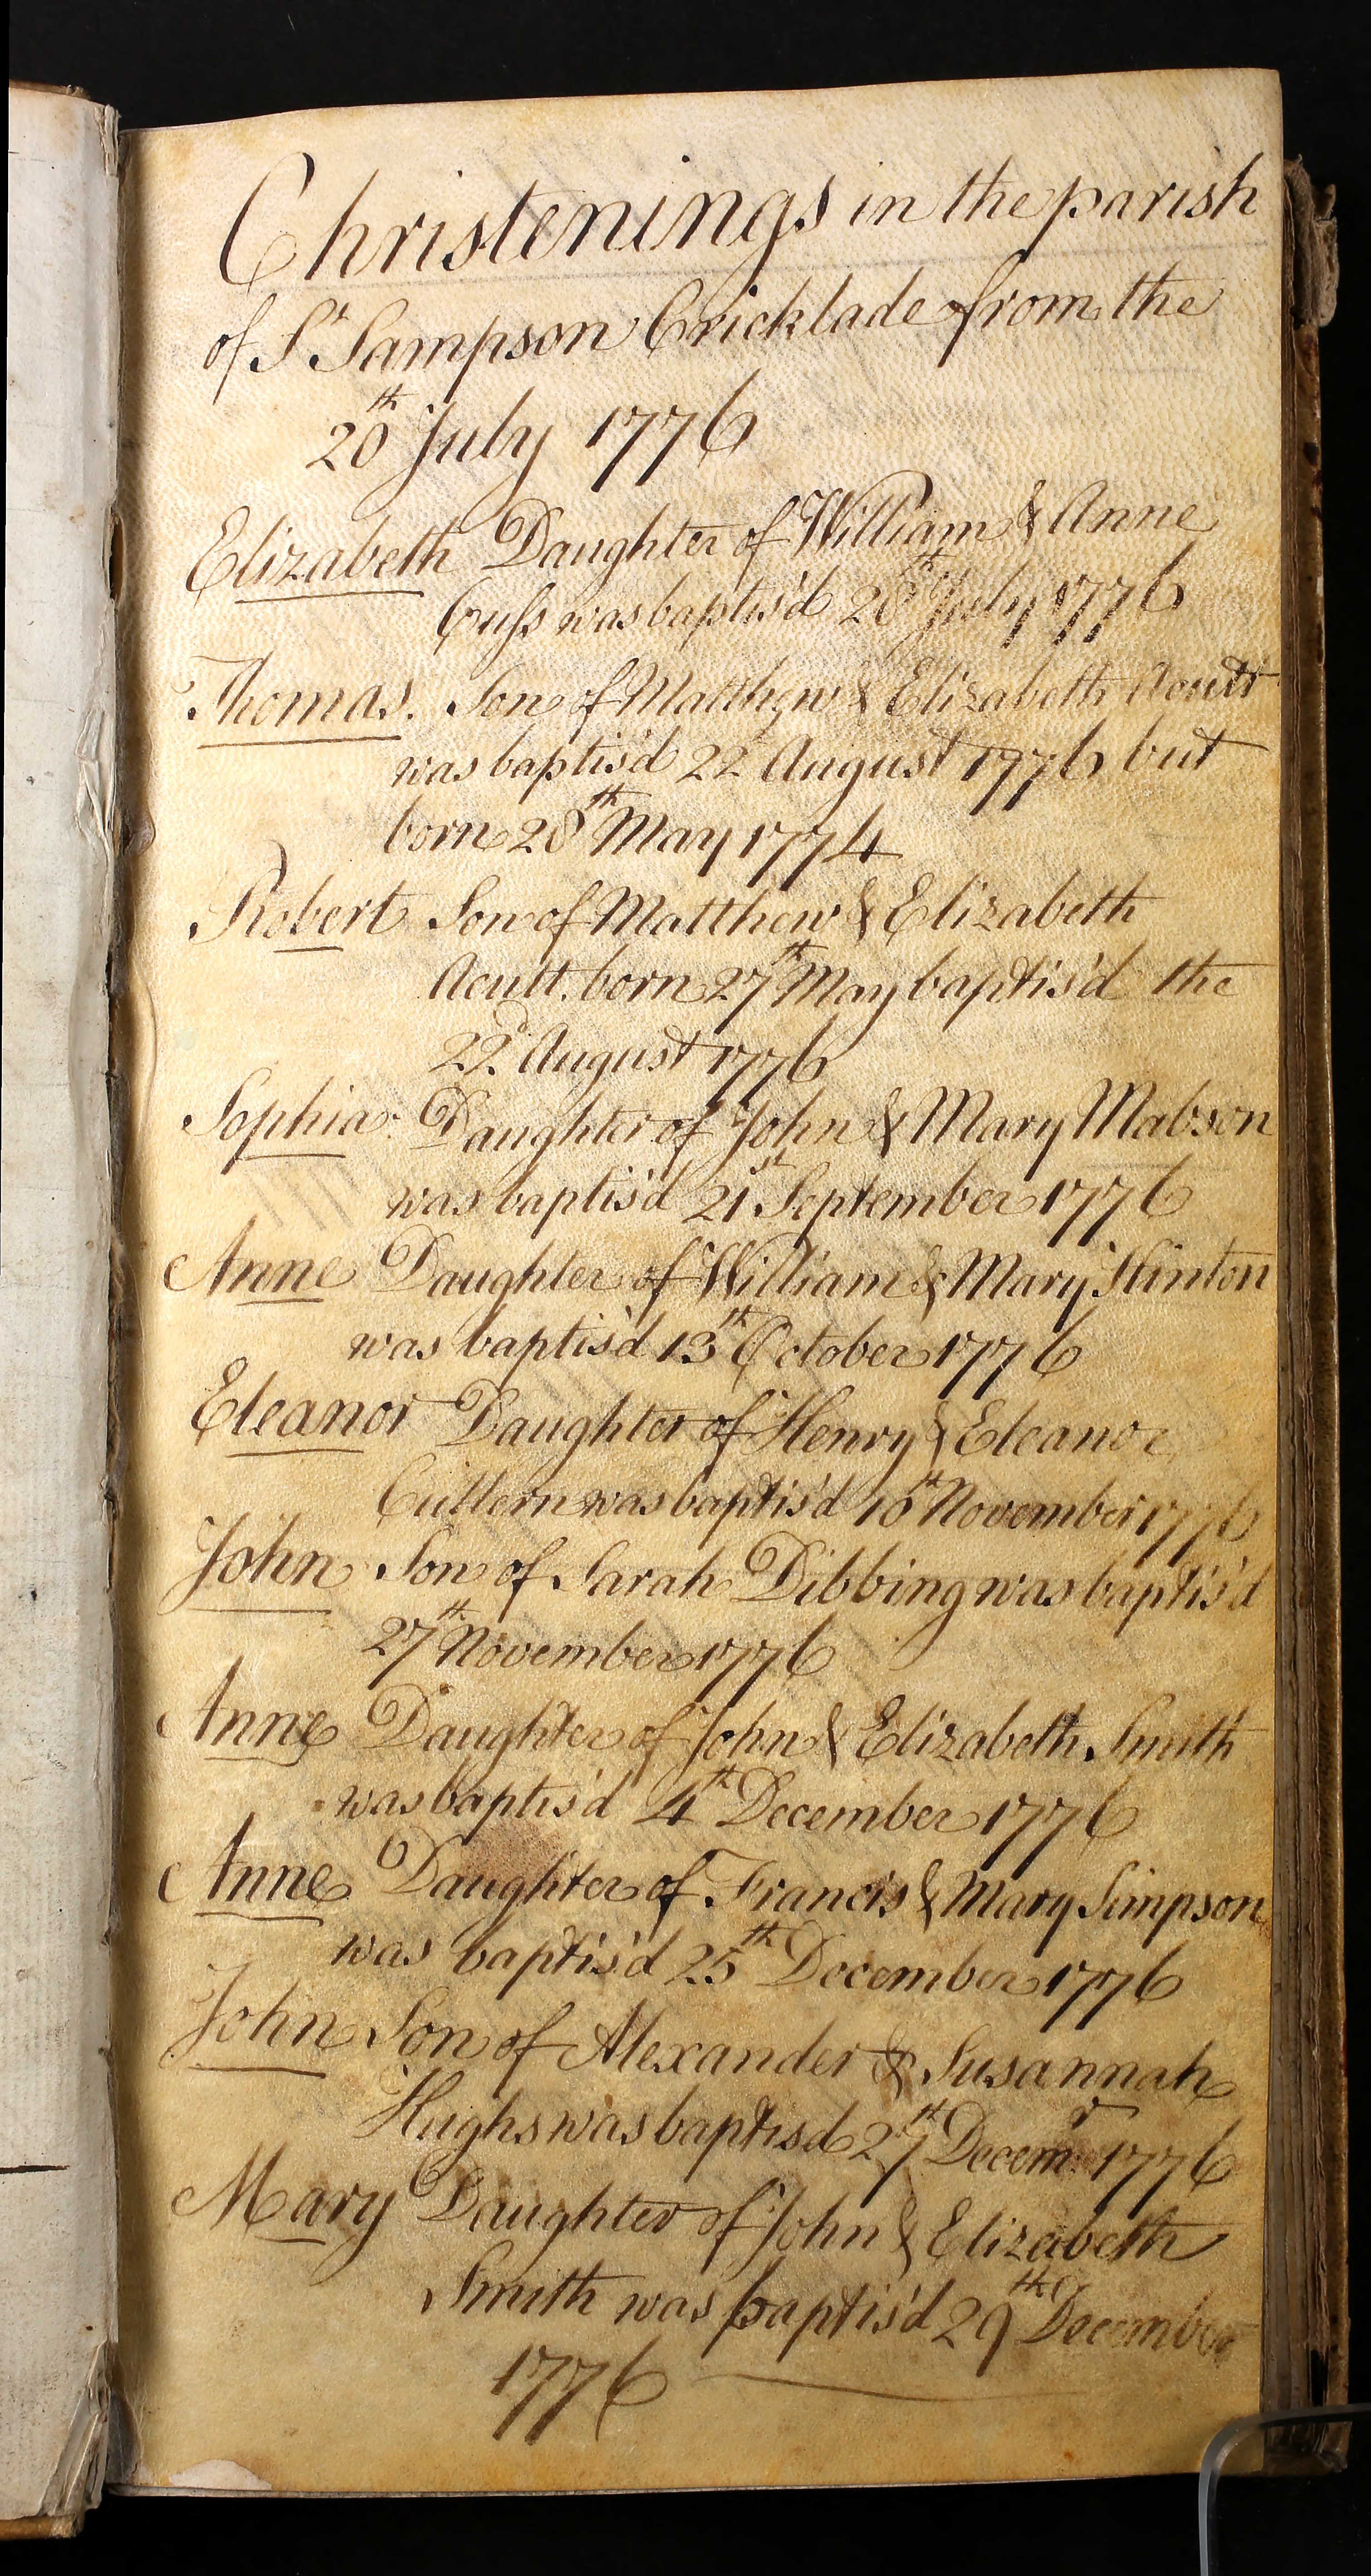 Christenings in the parish
of St Sampson Cricklade from the
20th July 1776
Elizabeth Daughter of William & Anne
Cuſs was baptis'd 20th July 1776
Thomas. Son of Matthew & Elizabeth Acutt
was baptis'd 22 August 1776 but
born 28th May 1774
Robert Son of Matthew & Elizabeth
Acutt. born 27th May baptis'd the
22d August 1776
Sophia. Daughter of John & Mary Mabson
was baptis'd 21st September 1776
Anne Daughter of William & Mary Hinton
was baptis'd 13th October 1776
Eleanor Daughter of Henry & Eleanor
was baptis'd 10th November 1776
John Son of Sarah Dibbing was baptis'd
27th November 1776
Anne Daughter of John & Elizabeth Smith
was baptis'd 4th December 1776
Anne Daughter of Francis & Mary Simpson
was baptis'd 25th December 1776
John Son of Alexander & Susannah
Hughs was baptisd 27th Decemr 1776
Mary Daughter of John & Elizabeth
Smith was baptis'd 29th December
1776